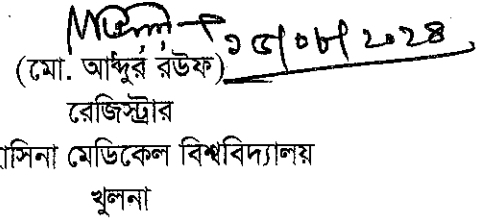 ১৫/০৮/২০২৪
(মো. আব্দুর রউফ)
রেজিস্ট্রার
াসিনা মেডিকেল বিশ্ববিদ্যালয়
খুলনা